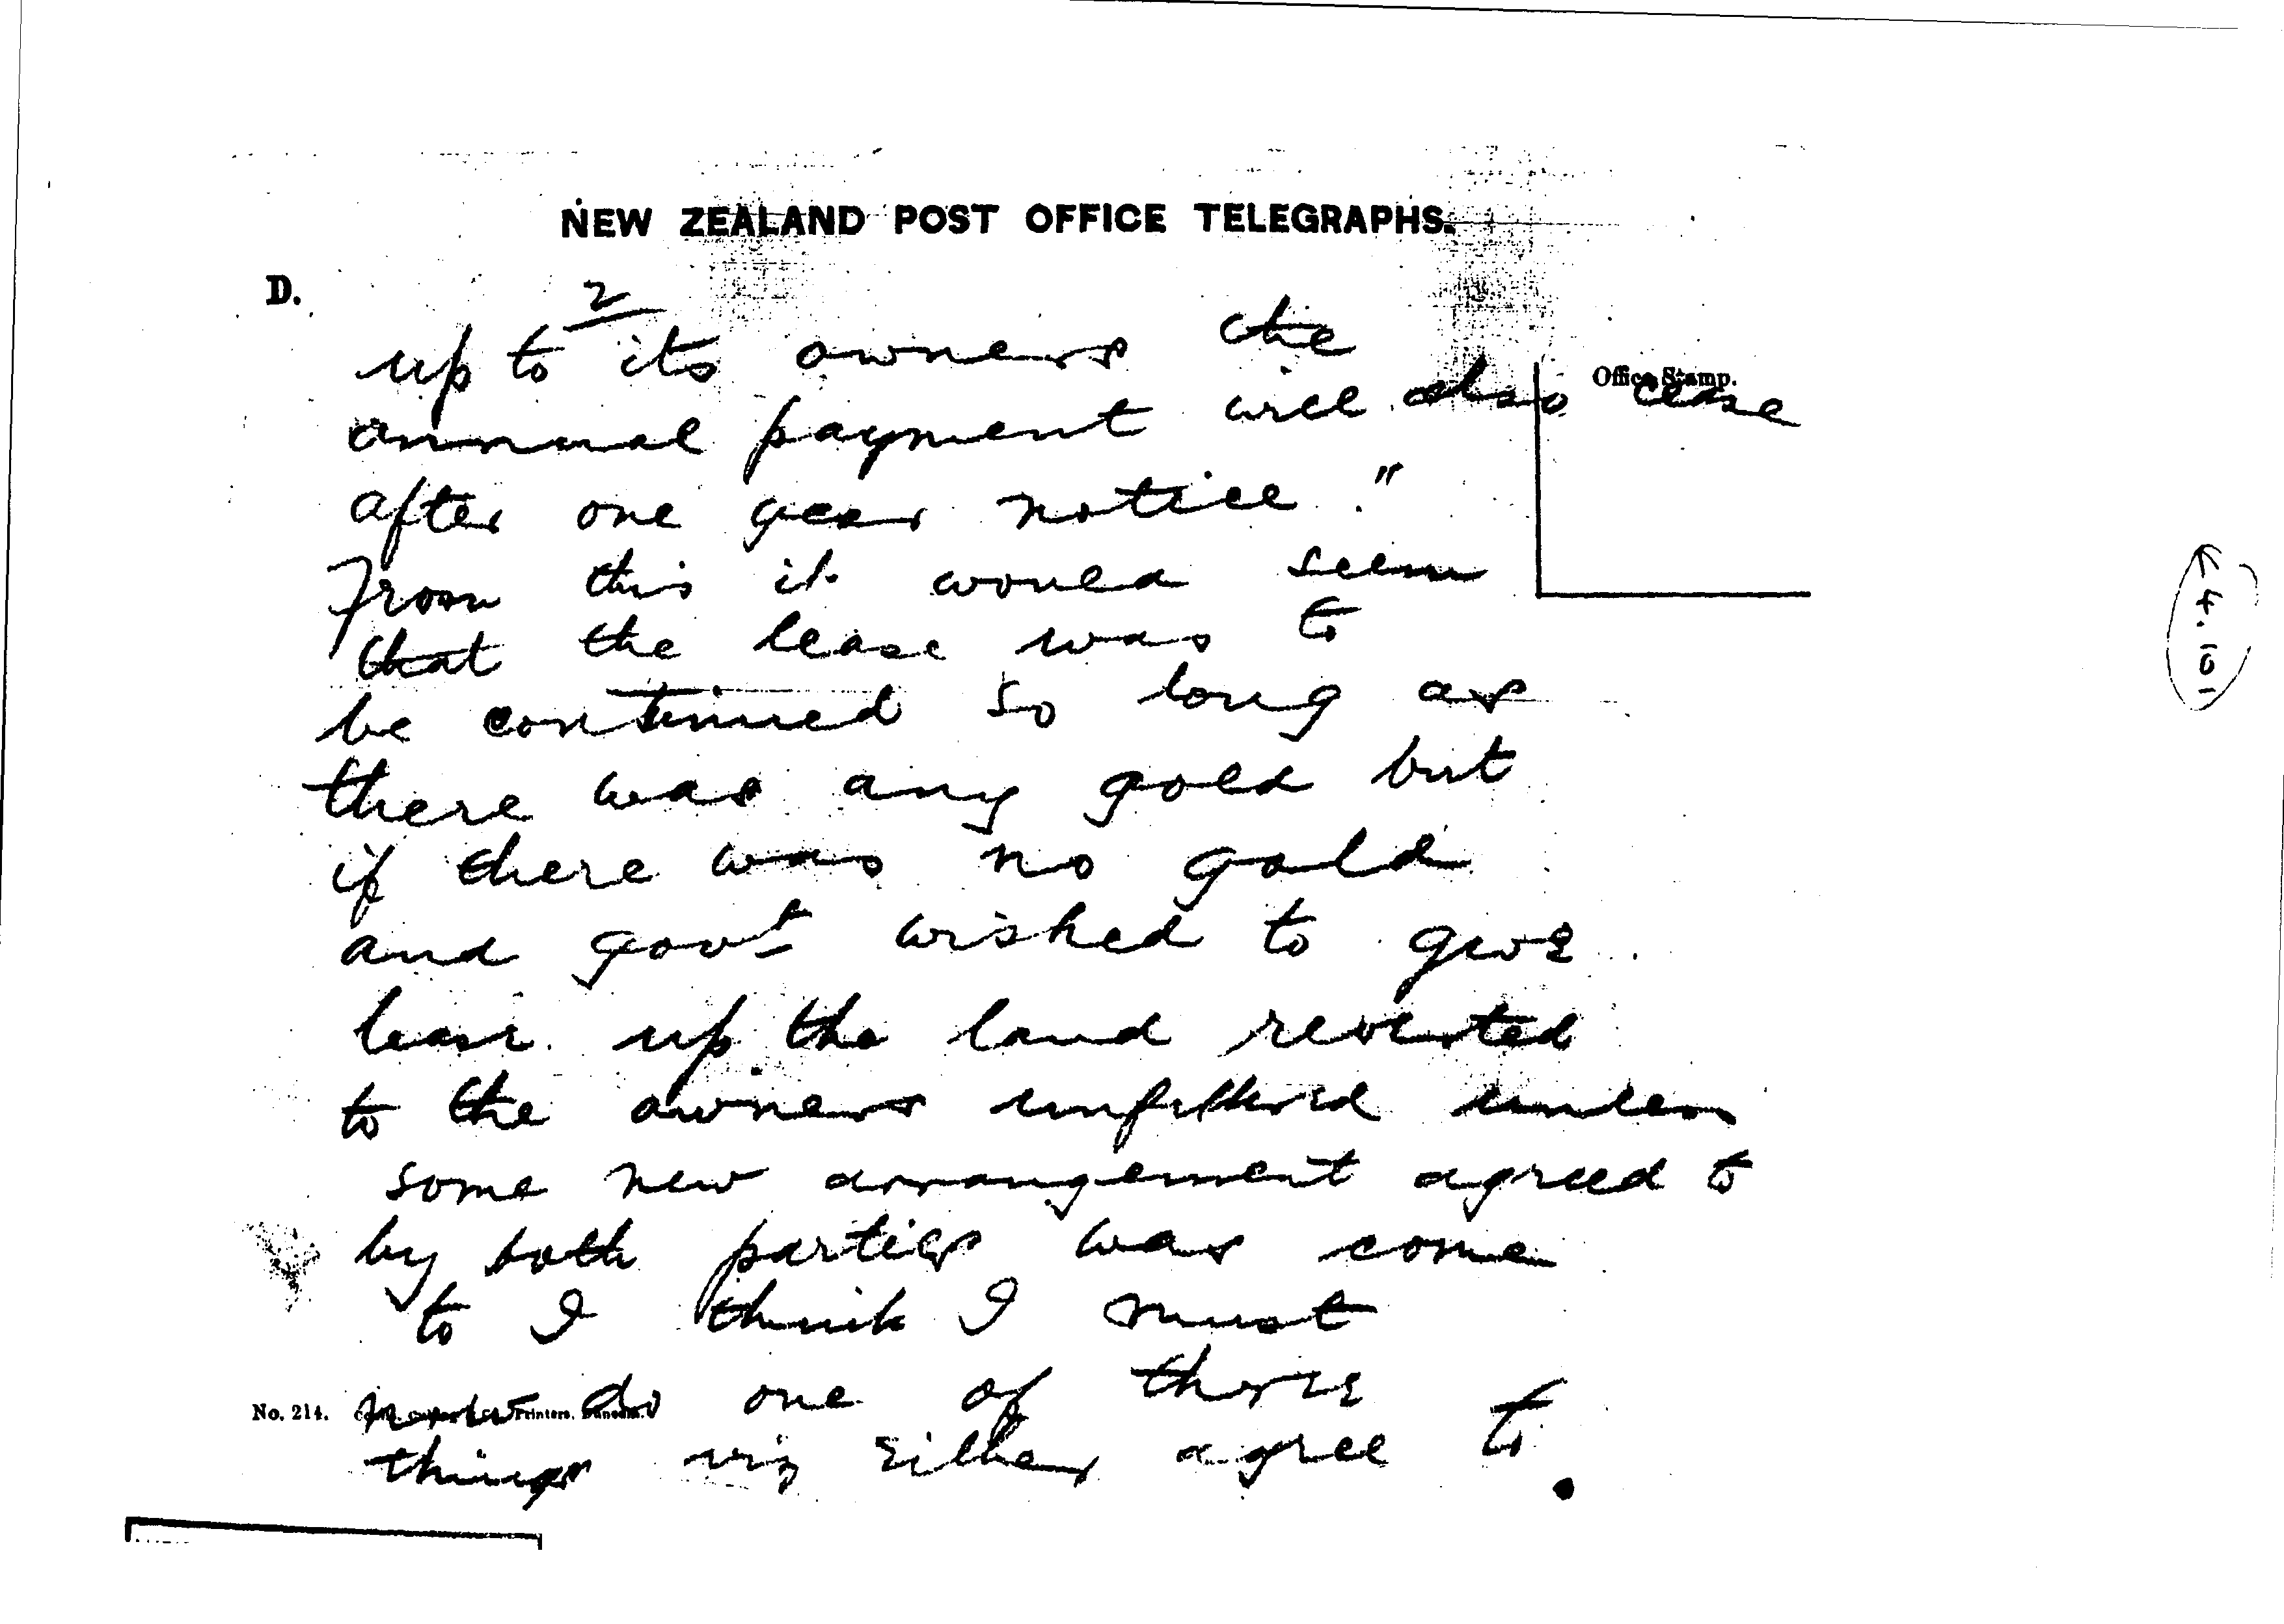 NEW ZEALAND POST OFFICE TELEGRAPHS.
D.
2
up to its owners the
Office Stamp.
annual payment will also cease
after one year notice."
From this it would seem
that the lease was to
be continued so long as
there was any gold but
if there was no gold
and govt wished to give
lease up the land reverted
to the owners unfettered unless
some new arrangement agreed to
by both parties was come
to I think I must
now do one of three
No. 214.
things viz either agree to